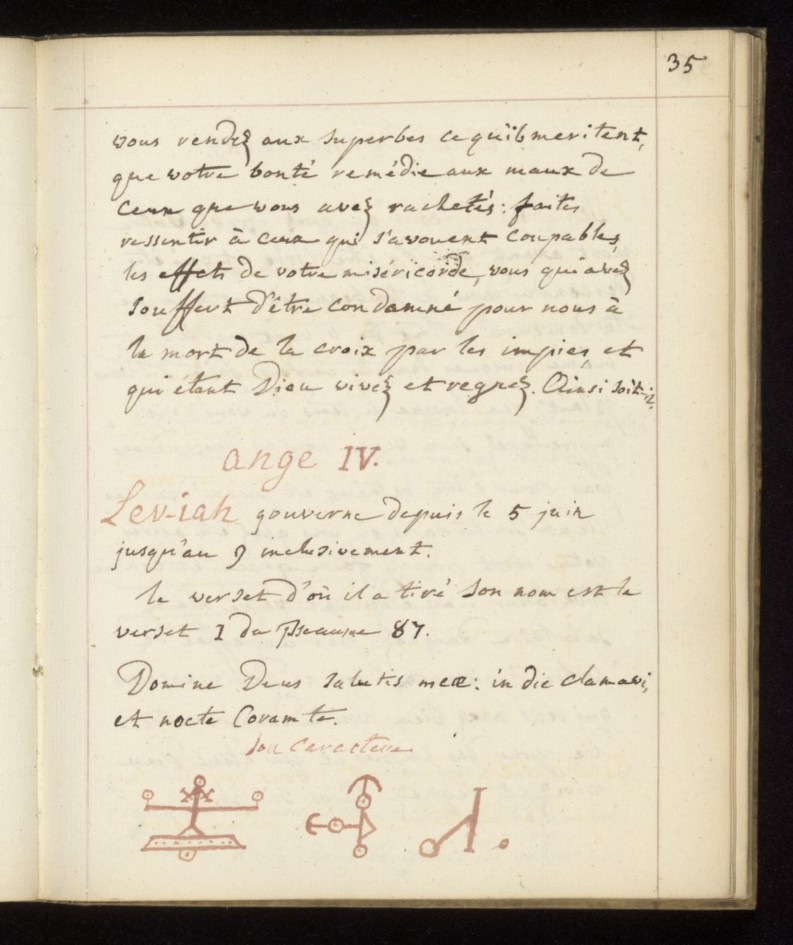 35
vous rendez aux superbes ce qu'ils meritent,
que votre bonté remédie aux maux de
ceux que vous avez rachetés: faites
ressentir à ceux qui s'avouent coupables,
les effets de votre miséricorde, vous qui avez
souffert d'être condamné pour nous à
la mort de la croix par les impies, et
qui étant Dieu vivez et regnez. Ainsi soit-il.
ange IV.
Lev-iah gouverne depuis le 5 juin
jusqu'au 9 inclusivement.
le verset d'où il a tiré son nom est le
verset 1 du Pseaume 87.
Domine Deus salutis meæ: in die clamavi,
et nocte coram te.
son caractere